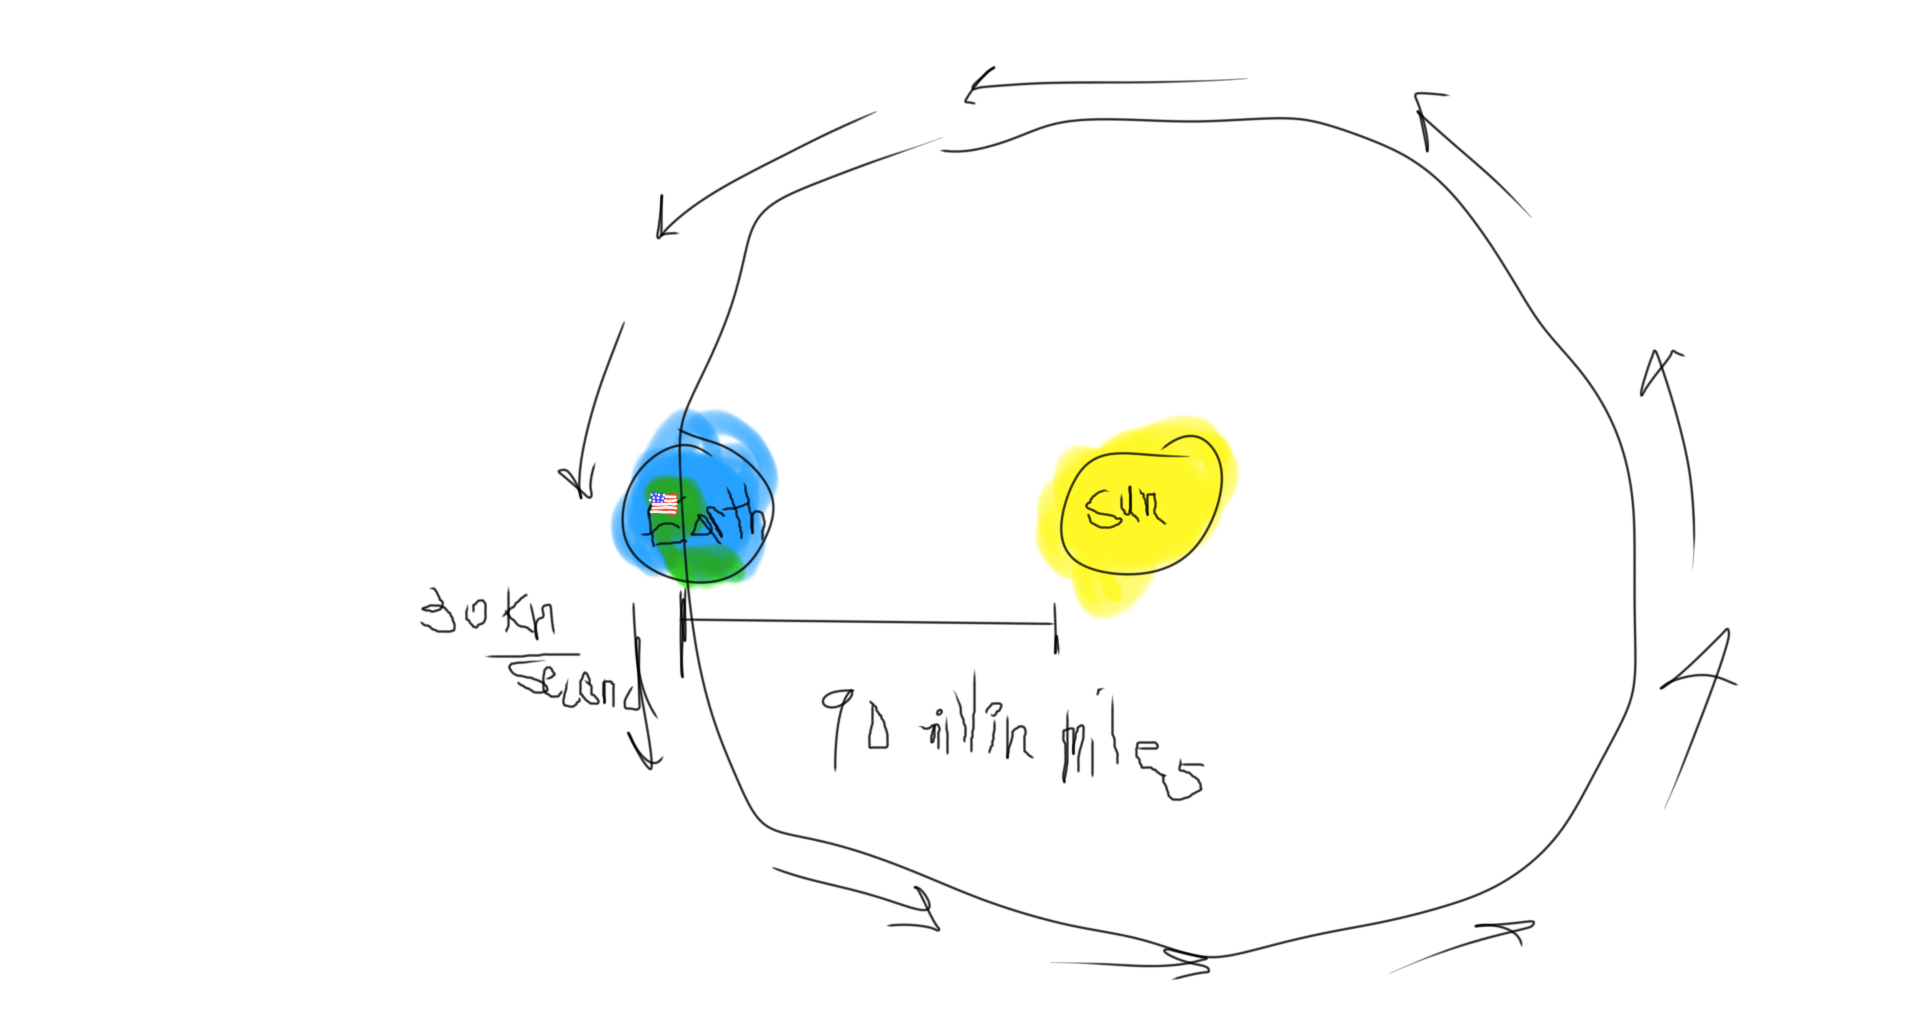 Earth
Sun
30 Km
second
90 million miles